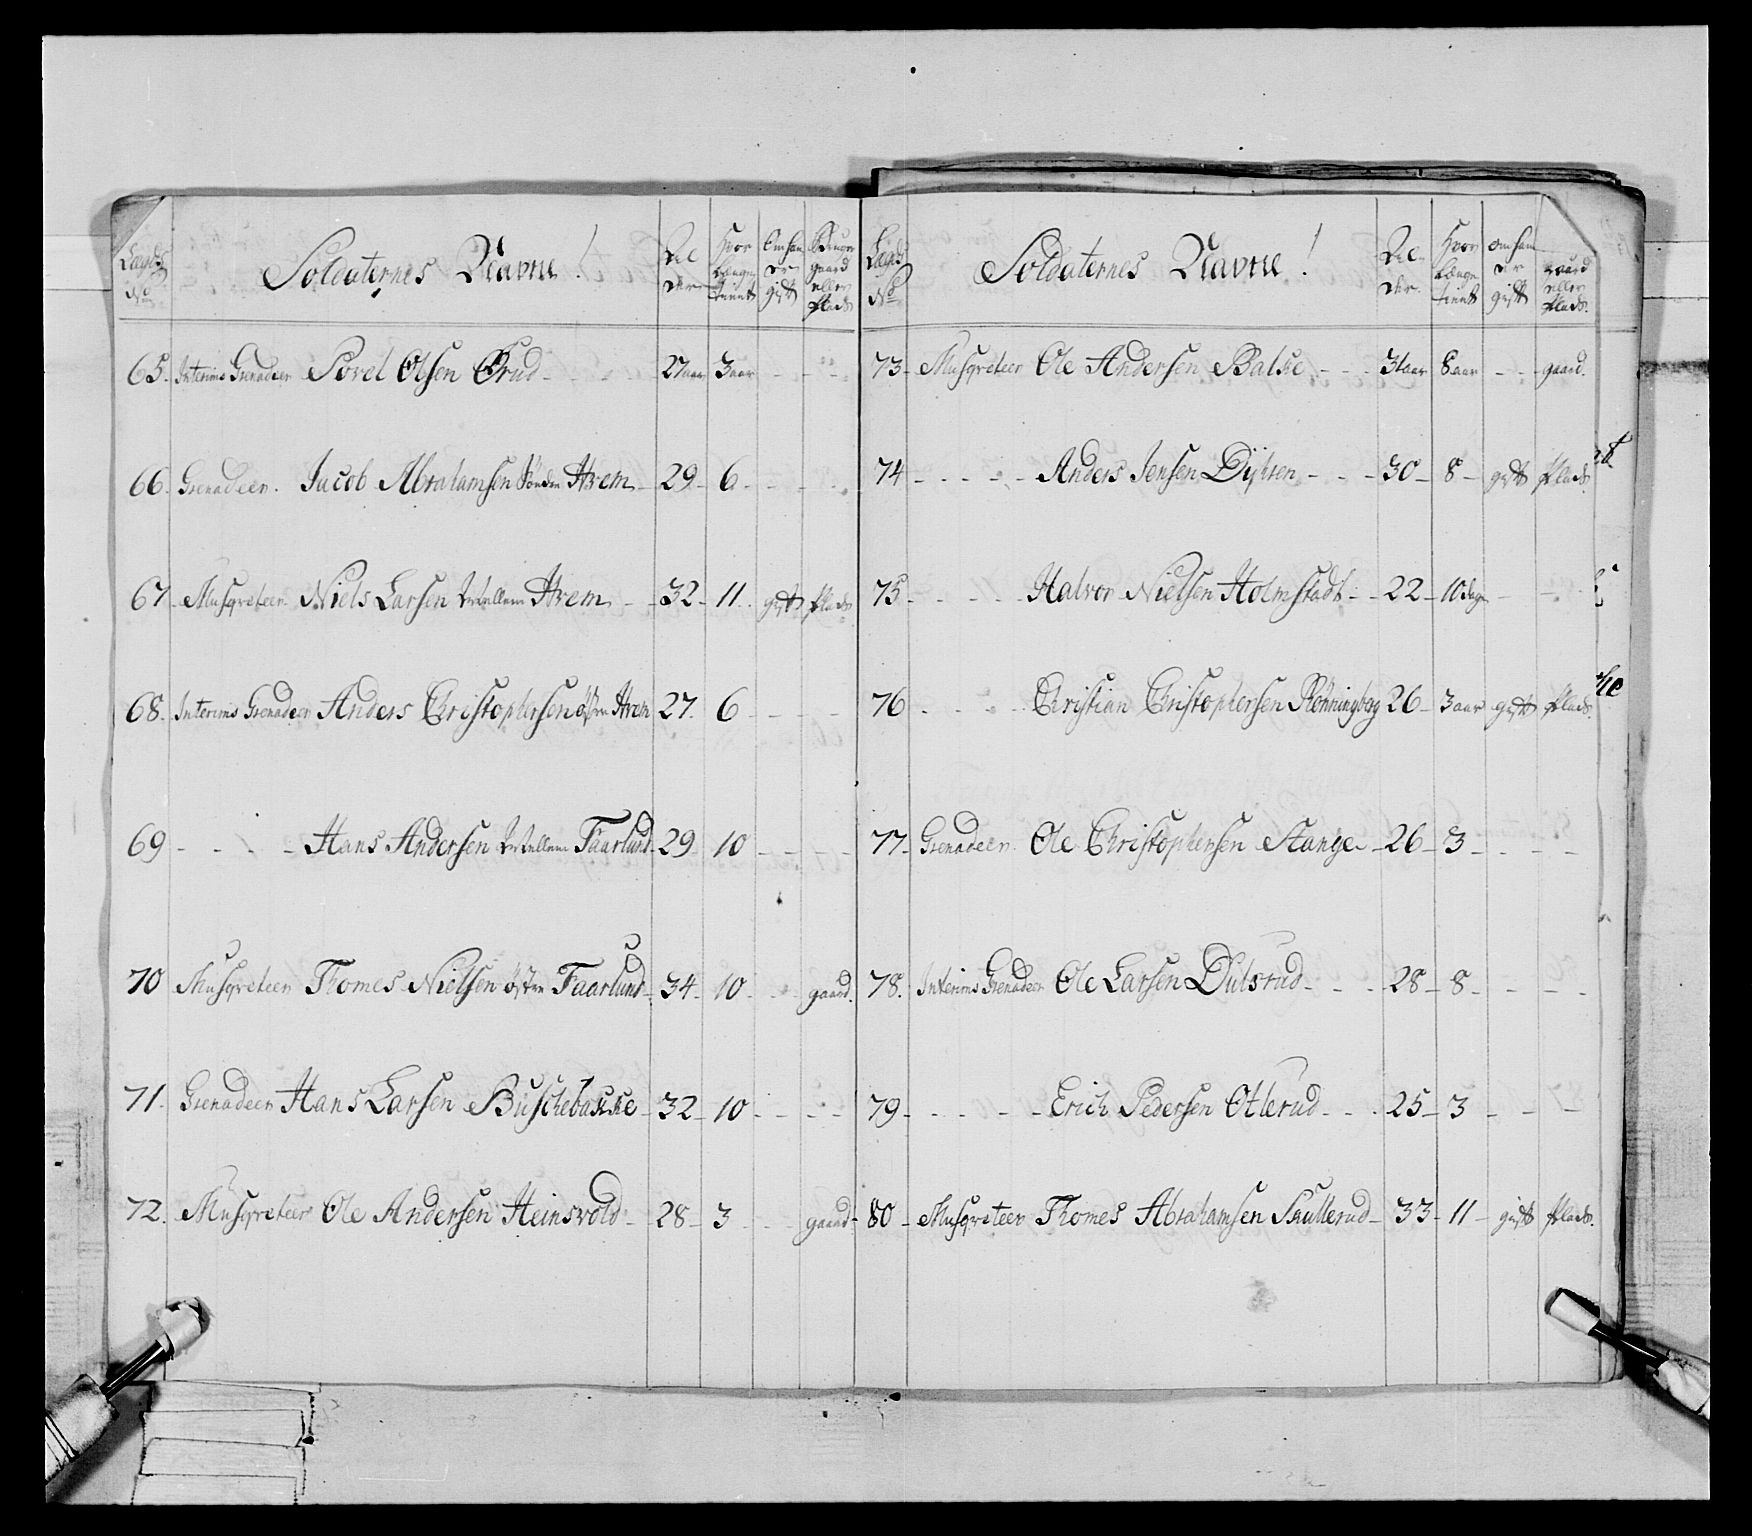 Lægds No
Soldaternes Navne!
Al der
Hvor længe tient
Om han er gift
Bruger gaard eller plads
65. Interims Grenadeer Povel Olsen Grud - - - 27 aar 3 aar - - -
66. Grenadeer. Jacob Abrahamsen Sönder Hrem - 29 - 6 - - - -
67. Musqveteer Niels Larsen Hrem - - 32 - 11. gift plads
68. Interims Grenadeer Anders Christophersen öster Hrem 27. 6 - - -
69 - - - - Hans Andersen Faarlund 29 10 - - - -
70 Musqveteer Thomes Nielsen öster Faarlund. 34. 10 - - gaard.
71. Grenadeer Hans Larsen Buschebacke - 32 - 10 - - - -
72. Musqveteer Ole Andersen Heinsvold - 28 - 3 - - gaard.
Lægds No
Soldaternes Navne!
Al der.
Hvor længe tient
om han er gift
gaard eller plads.
73 - Musqveteer Ole Andersen Balke - - - 31 aar 8 aar - - - gaard.
74 - - - - - Anders Jensen Dysten - - - 30 - 8 - gift plads
75 - - - - Halvor Nielsen Holmstadt - - 22 - 10 dage - -
76 - - - - Christian Christophersen Rönningberg 26 - 3 aar gift plads.
77 - Grenadeer Ole Christophersen Stange - 26 - 3 - - - -
78. Interims Grenadeer Ole Larsen Dulsrud - - - 28 - 8 - - - -
79 - - - - - Erich Pedersen Otlerud - - - 25 - 3 - - -
80 - Musqveteer Thomes Abrahamsen Skullerud - 33 - 11 - gift plads.